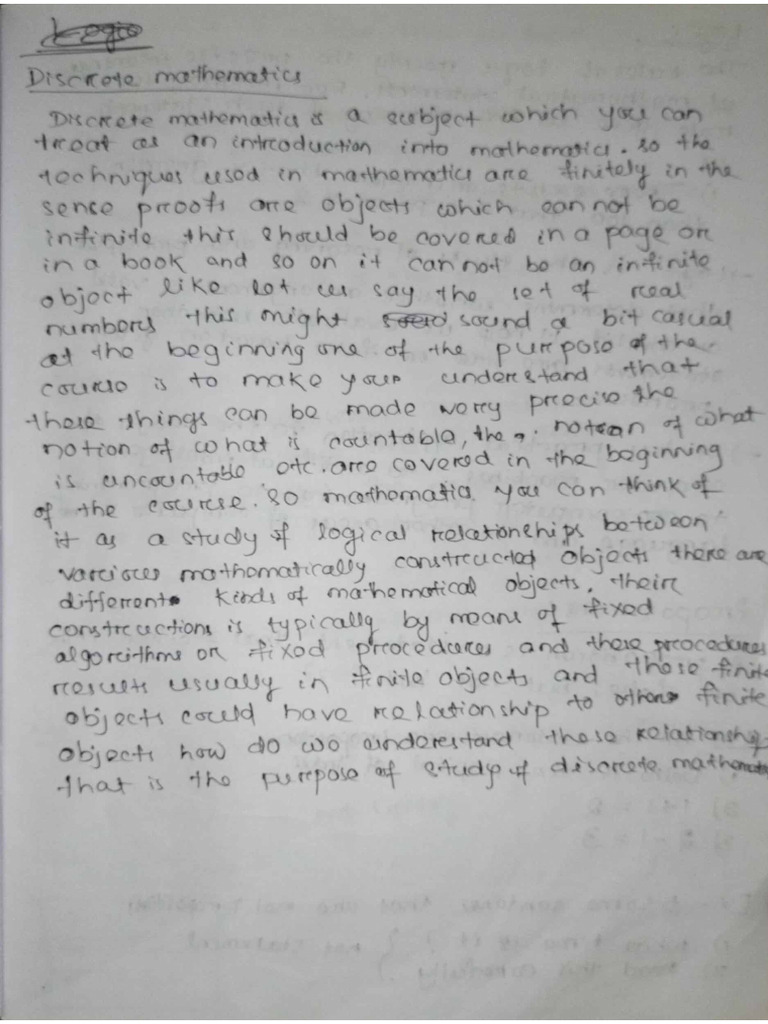 Logic
Discrete mathematics
Discrete mathematics is a subject which you can
treat as an introduction into mathematics. so the
techniques used in mathematics are finitely in the
sense proofs are objects which can not be
infinite this should be covered in a page or
in a book and so on it can not be an infinite
object like let us say the set of real
numbers this might sound a bit casual
at the beginning one of the purpose of the
course is to make your understand that
these things can be made very precise the
notion of what is countable, the notion of what
is uncountable etc. are covered in the beginning
of the course. so mathematics you can think of
it as a study of logical relationships between
various mathematically constructed objects there are
different kinds of mathematical objects. their
constructions is typically by means of fixed
algorithms or fixed procedures and these procedures
results usually in finite objects and those finite
objects could have relationship to other finite
objects how do we understand these relationship
that is the purpose of study of discrete mathematics